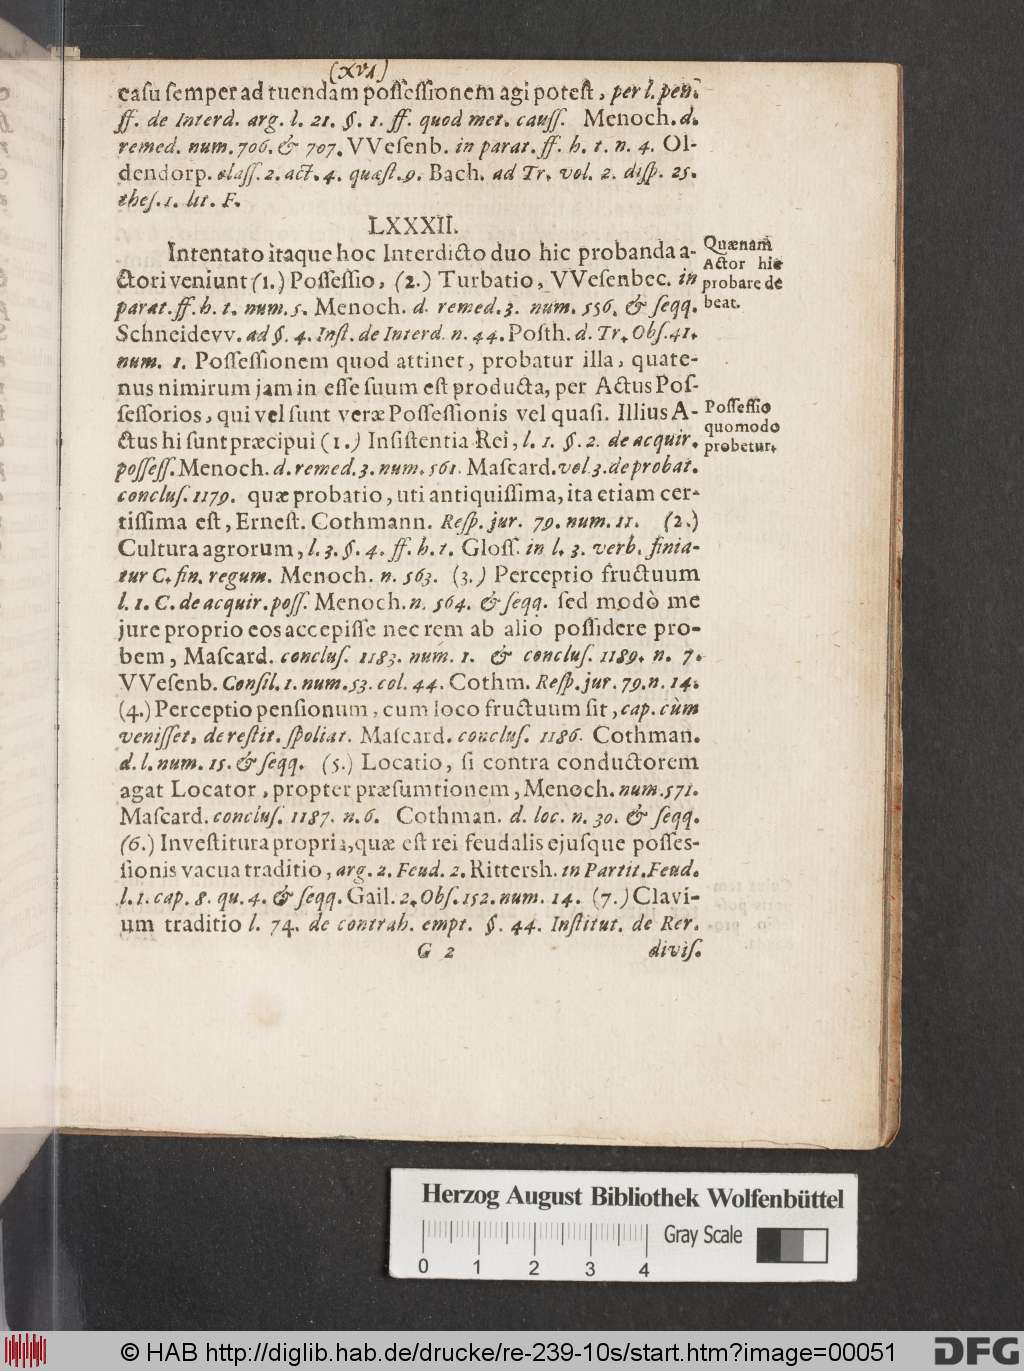 (XVI)
casu semper ad tuendam possessionem agi potest, per l. pen.
ff. de Interd. arg. l. 21. §. 1. ff. quod met. causs. Menoch. d.
remed. num. 706. & 707. VVesenb. in parat. ff. h. t. n. 4. Ol-
dendorp. class. 2. act. 4. quæst. 9. Bach. ad Tr. vol. 2. disp. 25.
thes. 1. lit. F.
LXXXII.
Intentato itaque hoc Interdicto duo hic probanda a-
ctori veniunt (1.) Possessio, (2.) Turbatio, VVesenbec. in
parat. ff. h. t. num. 5. Menoch. d. remed. 3. num. 556. & seqq.
Schneidevv. ad §. 4. Inst. de Interd. n. 44. Posth. d. Tr. Obs. 41.
num. 1. Possessionem quod attinet, probatur illa, quate-
nus nimirum jam in esse suum est producta, per Actus Pos-
sessorios, qui vel sunt veræ Possessionis vel quasi. Illius A-
ctus hi sunt præcipui (1.) Insistentia Rei, l. 1. §. 2. de acquir.
possess. Menoch. d. remed. 3. num. 561. Mascard. vol. 3. de probat.
conclus. 1179. quæ probatio, uti antiquissima, ita etiam cer-
tissima est, Ernest. Cothmann. Resp. jur. 79. num. 11. (2.)
Cultura agrorum, l. 3. §. 4. ff. h. t. Gloss. in l. 3. verb. finia-
tur C. fin. regum. Menoch. n. 563. (3.) Perceptio fructuum
l. 1. C. de acquir. poss. Menoch. n. 564. & seqq. sed modò me
jure proprio eos accepisse nec rem ab alio possidere pro-
bem, Mascard. conclus. 1183. num. 1. & conclus. 1189. n. 7.
VVesenb. Consil. 1. num. 53. col. 44. Cothm. Resp. jur. 79. n. 14.
(4.) Perceptio pensionum, cum loco fructuum sit, cap. cùm
venisset, de restit. spoliat. Mascard. conclus. 1186. Cothman.
d. l. num. 15. & seqq. (5.) Locatio, si contra conductorem
agat Locator, propter præsumtionem, Menoch. num. 571.
Mascard. conclus. 1187. n. 6. Cothman. d. loc. n. 30. & seqq.
(6.) Investitura propria, quæ est rei feudalis ejusque posses-
sionis vacua traditio, arg. 2. Feud. 2. Rittersh. in Partit. Feud.
l. 1. cap. 8. qu. 4. & seqq. Gail. 2. Obs. 152. num. 14. (7.) Clavi-
um traditio l. 74. de contrah. empt. §. 44. Institut. de Rer.
G 2 divis.
Quænam
Actor hic
probare de
beat.
Possessio
quomodo
probetur.
Herzog August Bibliothek Wolfenbüttel
Gray Scale
0 1 2 3 4
© HAB http://diglib.hab.de/drucke/re-239-10s/start.htm?image=00051
DFG